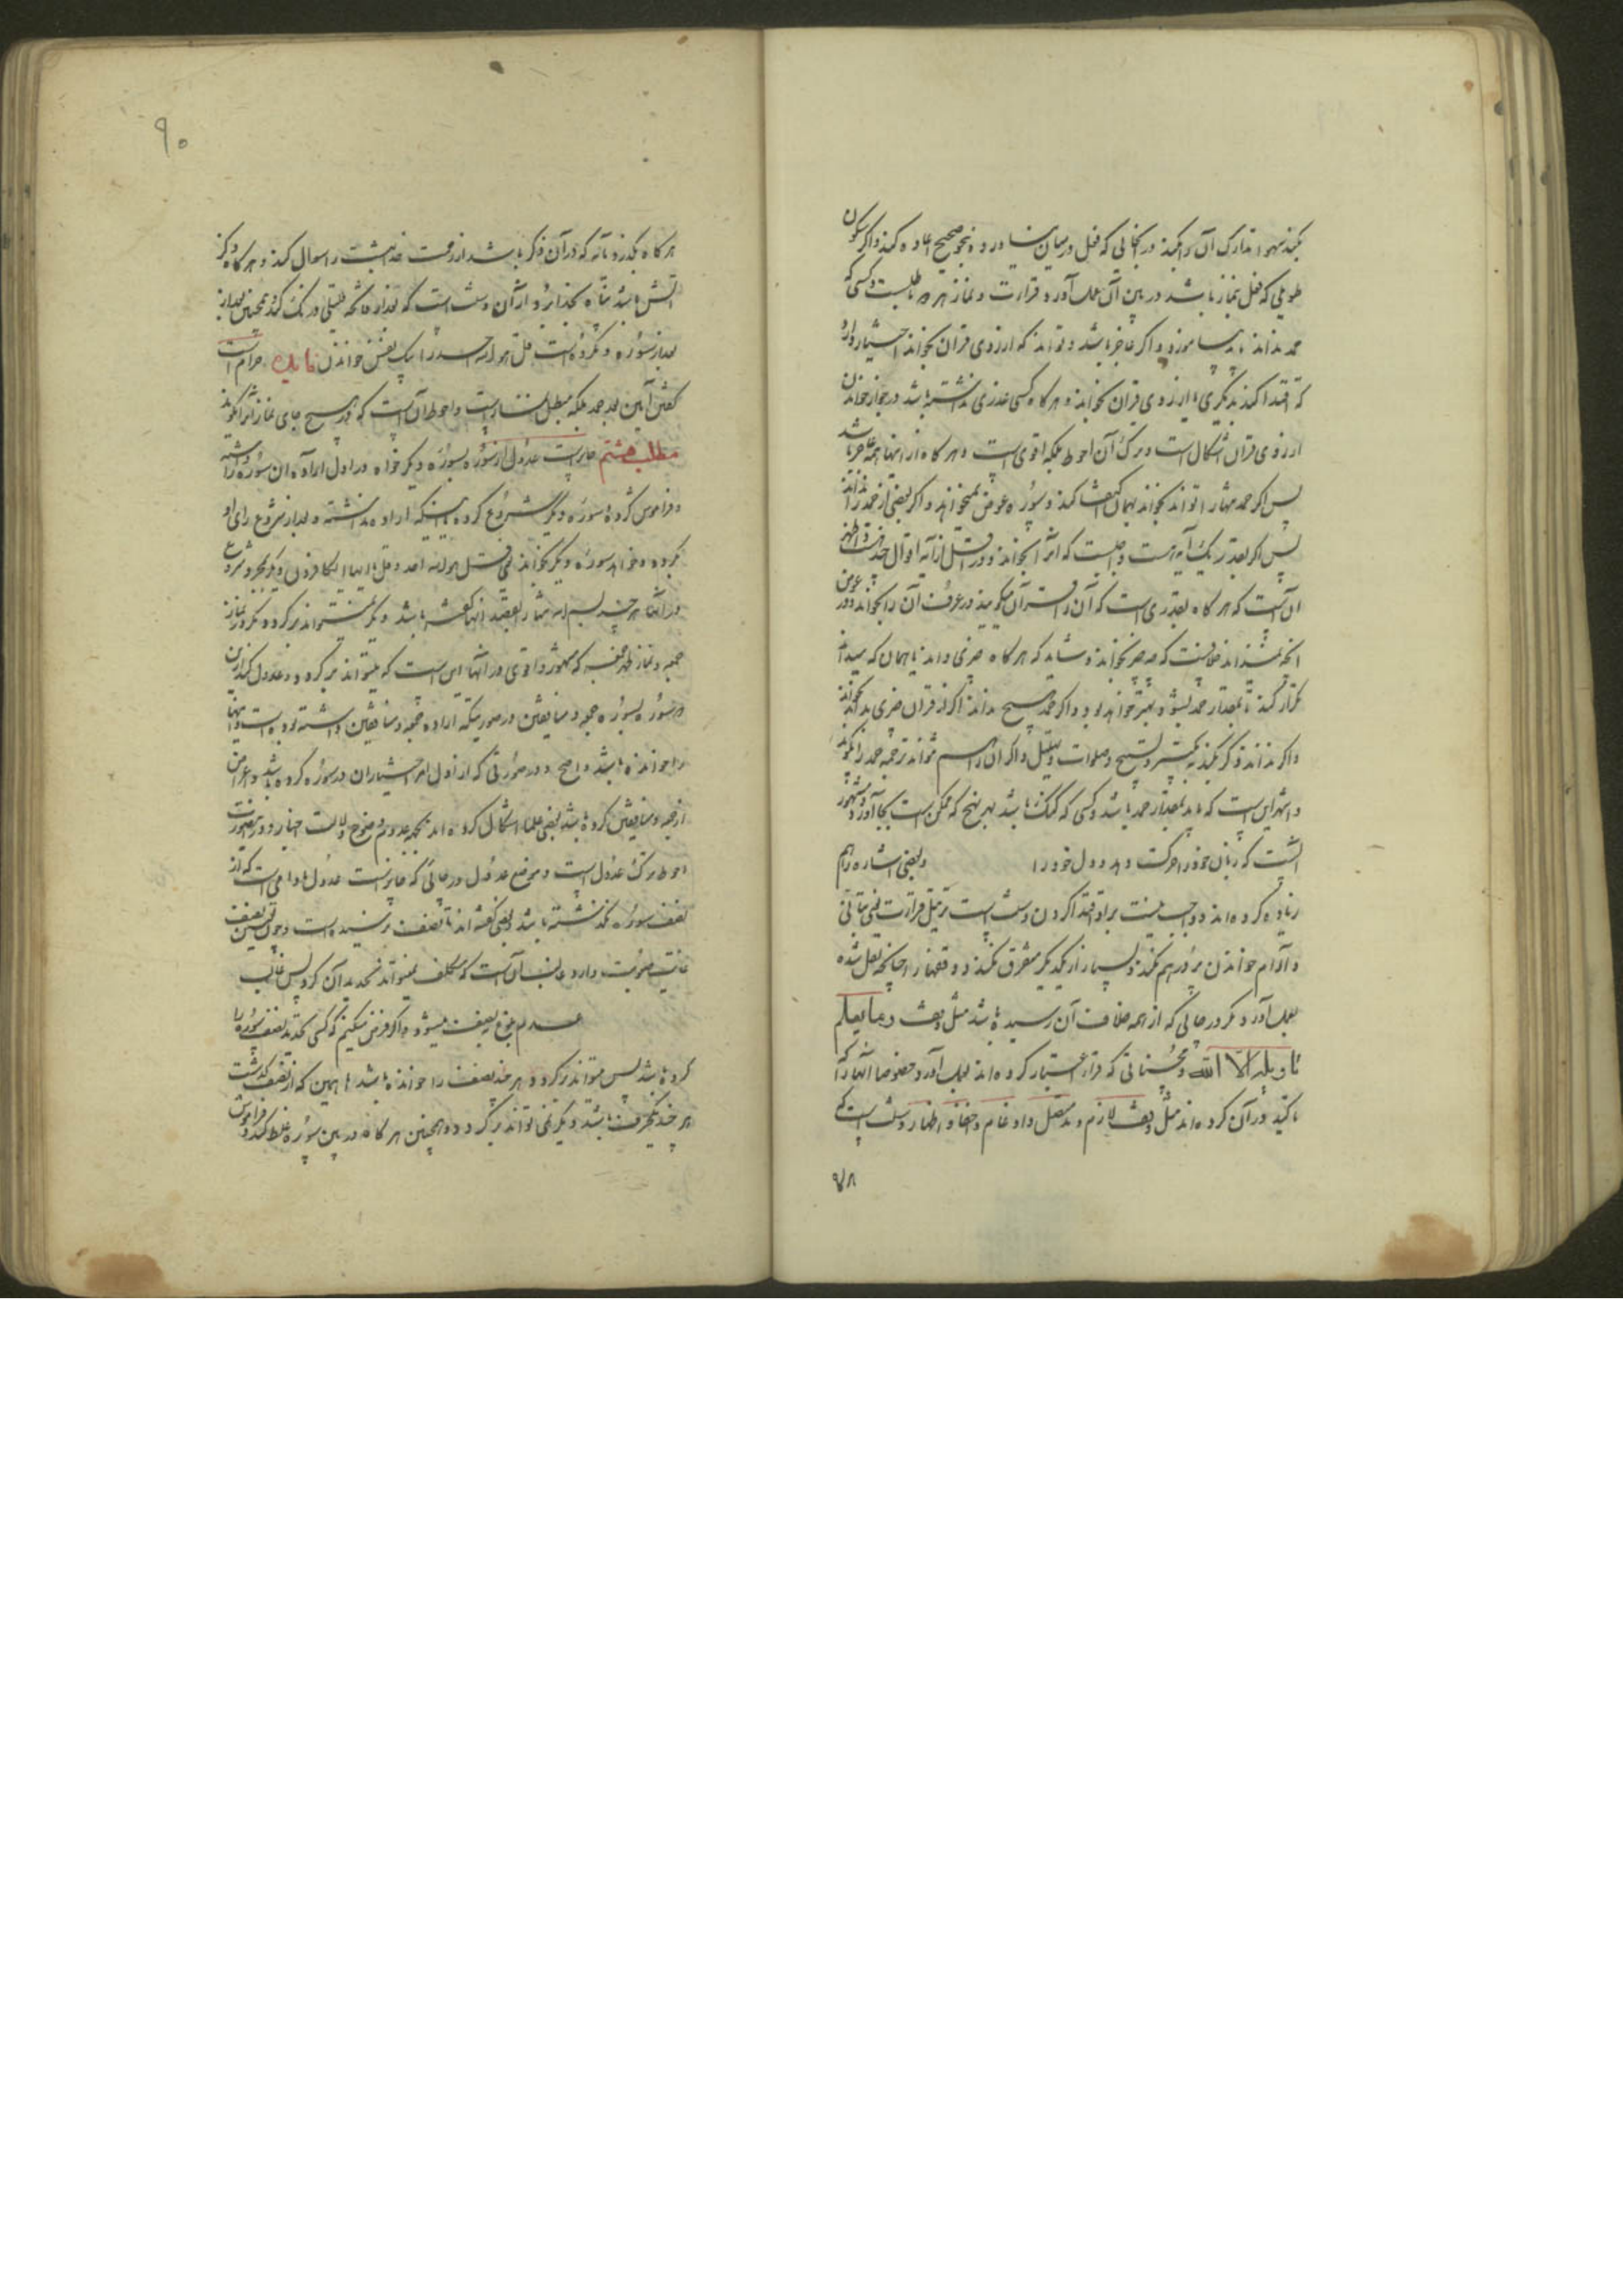 بکند سهوا تدارک آن را بکند در جائی که فصل در میان بسیار نشود و بنحو صحیح اعاده کند و اگر سکون
طویلی که مخل نماز باشد در بین آن بعمل آورد قرائت و نماز هر دو باطلست و کسی که
حمد نداند باید بیاموزد و اگر عاجز باشد و تواند که از روی قرآن بخواند اختیار دارد
که اقتدا کند بدیگری یا از روی قرآن بخواند و هر گاه کسی عذری نداشته باشد در جواز خواندن
از روی قرآن اشکال است و ترک آن احوط بلکه اقوی است و هر گاه از اینها همه عاجز باشد
پس اگر حمد تنها را تواند بخواند بهمان اکتفا کند و سوره عوض نمیخواهد و اگر بعضی از حمد را نداند
پس اگر بقدر یک آیه هست واجبست که آنرا بخواند و در اقل از آیه اقوال چند است و اظهر
آن است که هر گاه بقدری است که آن را قرآن میگویند در عرف آن را بخواند و در عوض
آنچه نمیداند خلافست که چه چیز بخواند و شاید که هر گاه چیزی داند یا همان که میداند
تکرار کند تا بمقدار حمد بشود بهتر خواهد بود و اگر حمد هیچ نداند اگر از قرآن چیزی بداند بخواند
و اگر نداند ذکر بکند به تکبیر و تسبیح و صلوات و تهلیل و اگر آن را هم نتواند ترجمه حمد را بگوید
و اشهر این است که باید بمقدار حمد باشد و کسی که گنگ باشد بهر نهج که ممکن است بجا آورد و مشهور
آنست که زبان خود را حرکت دهد و دل خود را و بعضی اشاره را هم
زیاد کرده اند و واجب نیست بر او اقتدا کردن و سنت است ترتیل قرائت یعنی بتأنی
و آرام خواندن بر روی هم نکند و بسیار از یکدیگر متفرق نکند و وقفها را چنانکه نقل شده
بعمل آورد مگر در جائی که از ائمه خلاف آن رسیده باشد مثل وقف و ما یعلم
تاویله الا الله و محسناتی که قراء اعتبار کرده اند بعمل آورد خصوصا آنها را که
تاکید در آن کرده اند مثل وقف لازم و مد متصل و ادغام و اخفا و اظهار و سنت است که
هر گاه بگذرد بآیه که در آن ذکر باشد از رحمت خدا بهشت را سوال کند و هر گاه ذکر
آتش باشد پناه بخدا برد از آن و سنت است که
بعد از سوره و مکروه است قل هو الله احد را بیک نفس خواندن فایده حرام است
گفتن آمین بعد حمد بلکه مبطل نماز است و احوط آن است که در هیچ جای نماز آنرا نگوید
مطلب هشتم جایز است عدول از سوره بسوره دیگر خواه در اول اراده آن سوره را داشته
و فراموش کرده باشد سوره دیگر شروع کرده یا اینکه اراده نداشته و بعد از شروع رای او
بگردد و خواهد سوره دیگر بخواند بغیر قل هو الله احد و قل یا ایها الکافرون
در آنها هر چند بسم الله تنها را بقصد آنها گفته باشد دیگر نمیتواند برگردد مگر در نماز
جمعه و نماز ظهر جمعه که مشهور و اقوی در آنها این است که میتواند برگردد و عدول کند از این
دو سوره بسوره جمعه و منافقین در صورتیکه اراده جمعه و منافقین داشته بوده است و اینها
را خوانده باشد و اصح و در صورتی که از اول امر اختیار آن دو سوره کرده باشد و اعراض
از جمعه و منافقین کرده باشد بعضی علما اشکال کرده اند بجهة عدم وضوح دلالت اخبار و در این صورت
احوط ترک عدول است و موضع عدول در جائی که جایز است عدول مادامی است که از
نصف سوره نگذشته باشد و بعضی گفته اند تا بنصف نرسیده است و چون تعیین نصف
غایت صعوبت دارد و غالب آن است که مکلف نمیتواند تحدید آن کرد پس غالب
عدم بلوغ به نصف میشود و اگر فرض میکنیم که کسی تحدید نصف سوره را
کرده باشد پس میتواند برگردد هر چند نصف را خوانده باشد تا همین که از نصف گذشت
هر چند یکحرف باشد دیگر نمی تواند برگردد و همچنین هر گاه در بین سوره غلط کند و فراموش
۹۰